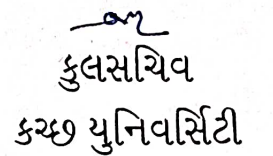 કુલસચિવ
કચ્છ યુનિવર્સિટી